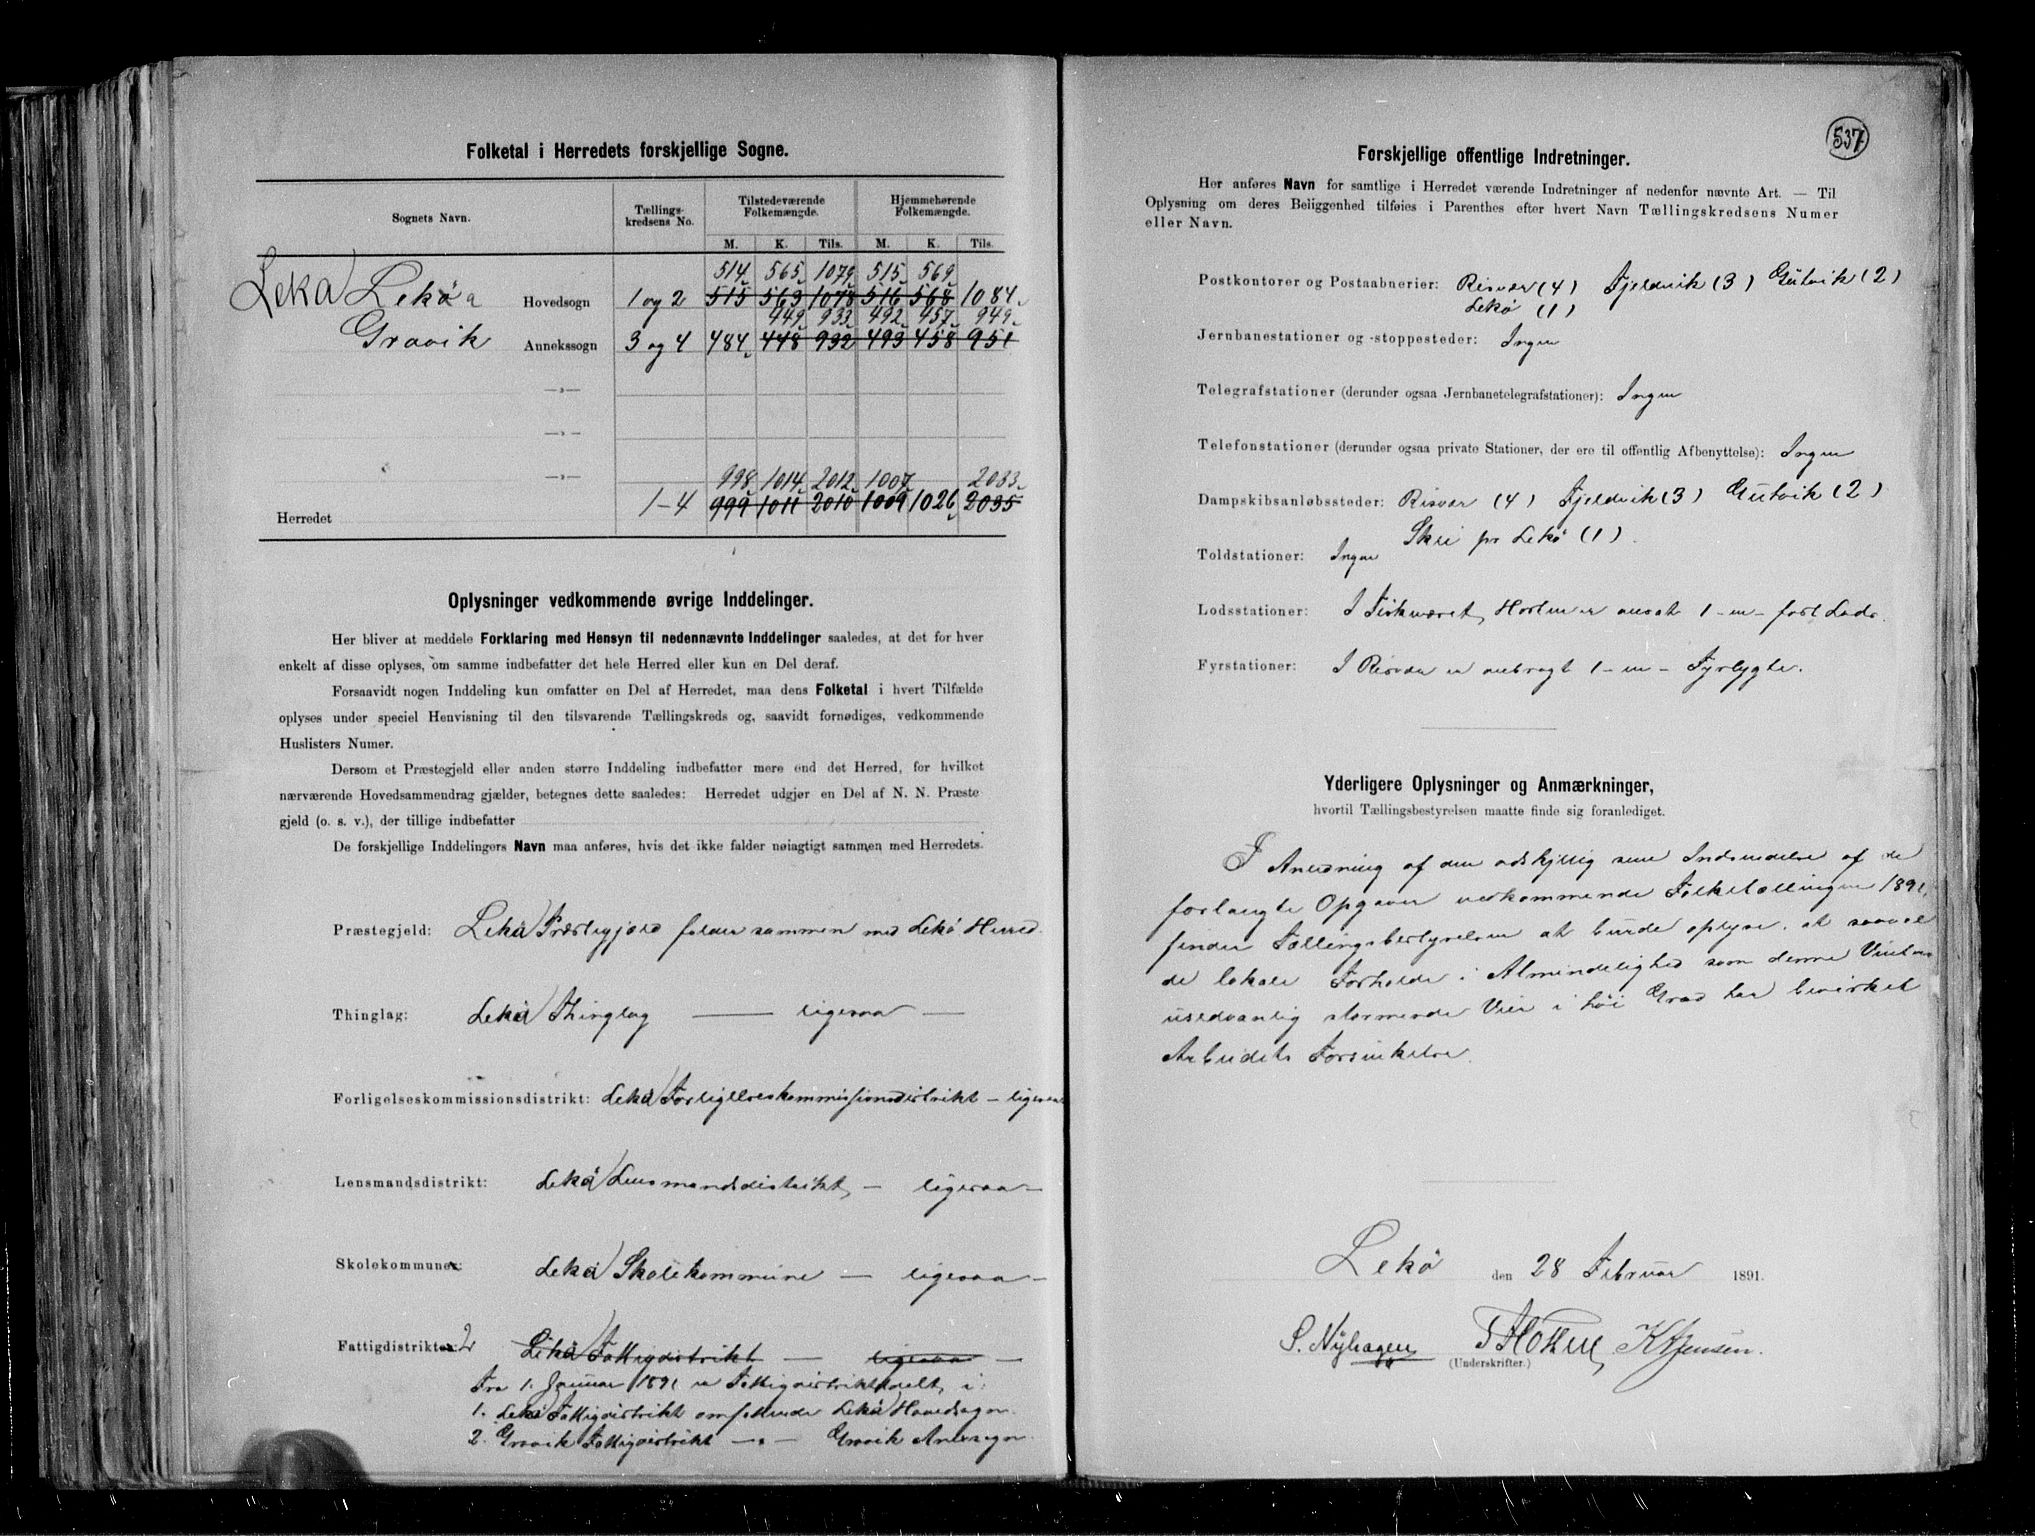 Folketal i Herredets forskjellige Sogne.
Sognets Navn.
Tællings-
kredsens No.
Tilstedeværende
Folkemængde.
Hjemmehørende
Folkemængde.
M. K. Tils. M. K. Tils.
514 565 1079 515 569
Leka) Lekø Hovedsogn 1 og 2 515 563 1078 516 568 1084
449 933 492 457 949
Gravik Annekssogn 3 og 4 484 448 932 493 458 951
—»—
—»—
—»—
998 1014 2012 1007 2033
Herredet 1-4 999 1011 2010 1009 1026 2035
Oplysninger vedkommende øvrige Inddelinger.
Her bliver at meddele Forklaring med Hensyn til nedennævnte Inddelinger saaledes, at det for hver
enkelt af disse oplyses, om samme indbefatter det hele Herred eller kun en Del deraf.
Forsaavidt nogen Inddeling kun omfatter en Del af Herredet, maa dens Folketal i hvert Tilfælde
oplyses under speciel Henvisning til den tilsvarende Tællingskreds og, saavidt fornødiges, vedkommende
Huslisters Numer.
Dersom et Præstegjeld eller anden større Inddeling indbefatter mere end det Herred, for hvilket
nærværende Hovedsammendrag gjælder, betegnes dette saaledes: Herredet udgjør en Del af N. N. Præste
gjeld (o. s. v.), der tillige indbefatter
De forskjellige Inddelingers Navn maa anføres, hvis det ikke falder nøiagtigt sammen med Herredets.
Præstegjeld: Leka) Præstegjeld falder sammen med Lekø Herred.
Thinglag: Leka) Thinglag — ligesaa —
Forligelseskommissionsdistrikt: Leka) Forligelseskommissionsdistrikt - ligesaa
Lensmandsdistrikt: Leka) Lensmandsdistrikt, — ligesaa —
Skolekommune: Leka) Skolekommune — ligesaa —
Fattigdistrikter: 2 Leka) Fattigdistrikt — ligesaa —
Fra 1. Januar 1891 er Fattigdistriktet delt i:
1. Leka) Fattigdistrikt omfattende Leka) Hovedsogn.
2. Gravik Fattigdistrikt — " — Gravik Annexsogn.
537
Forskjellige offentlige Indretninger.
Her anføres Navn for samtlige i Herredet værende Indretninger af nedenfor nævnte Art. — Til
Oplysning om deres Beliggenhed tilføies i Parenthes efter hvert Navn Tællingskredsens Numer
eller Navn.
Postkontorer og Postaabnerier: Risvær (4) Fjeldvik (3) Gutvik (2)
Lekø (1)
Jernbanestationer og -stoppesteder: Ingen
Telegrafstationer (derunder ogsaa Jernbanetelegrafstationer): Ingen
Telefonstationer (derunder ogsaa private Stationer, der ere til offentlig Afbenyttelse): Ingen
Dampskibsanløbssteder: Risvær (4) Fjeldvik (3) Gutvik (2)
Skei pr Lekø (1).
Toldstationer: Ingen
Lodsstationer: I Fiskeværet Horten er ansat 1 -en- fast Lods.
Fyrstationer: I Risvær er anbragt 1 -en- Fyrlygte.
Yderligere Oplysninger og Anmærkninger,
hvortil Tællingsbestyrelsen maatte finde sig foranlediget.
I Anledning af den adskillig sene Indsendelse af de
forlangte Opgaver vedkommende Folketællingen 1891,
finder Tællingsbestyrelsen at burde oplyse, at saavel
de lokale Forholde i Almindelighed som denne Vinters
usedvanlig stormende Veir i høi Grad har bevirket
Arbeidets Forsinkelse.
Lekø den 28 Februar 1891.
S. Nyhagen K Jensen.
(Underskrifter.)